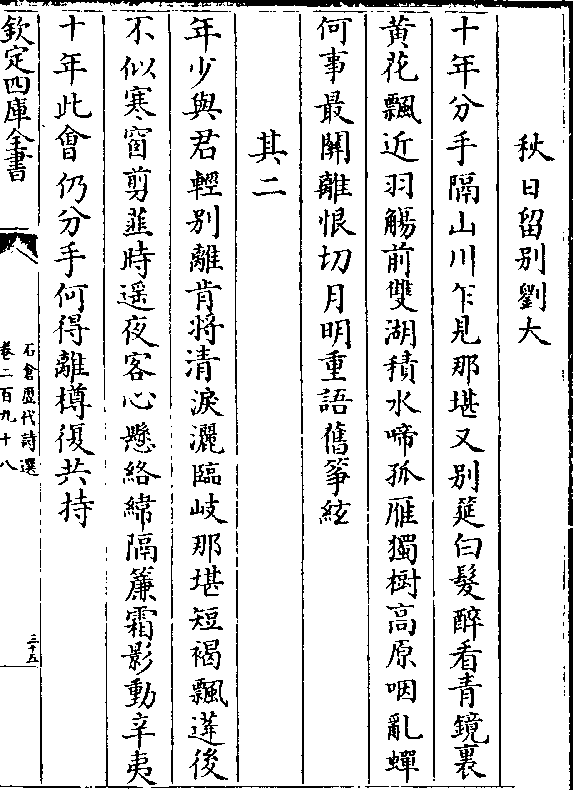 秋日留别劉大
十年分手隔山川乍見那堪又别筵白髮醉看青鏡裏
黄花飄近羽觴前雙湖積水啼孤雁獨樹高原咽亂蟬
何事最關離恨切月明重語舊筝絃
其二
年少與君輕别離肯將清淚灑臨岐那堪短褐飄蓬後
不似寒窗剪韮時遥夜客心懸絡緯隔簾霜影動辛夷
十年此會仍分手何得離樽復共持
欽定四庫全書
石倉歴代詩選
卷二百九十八
三十五